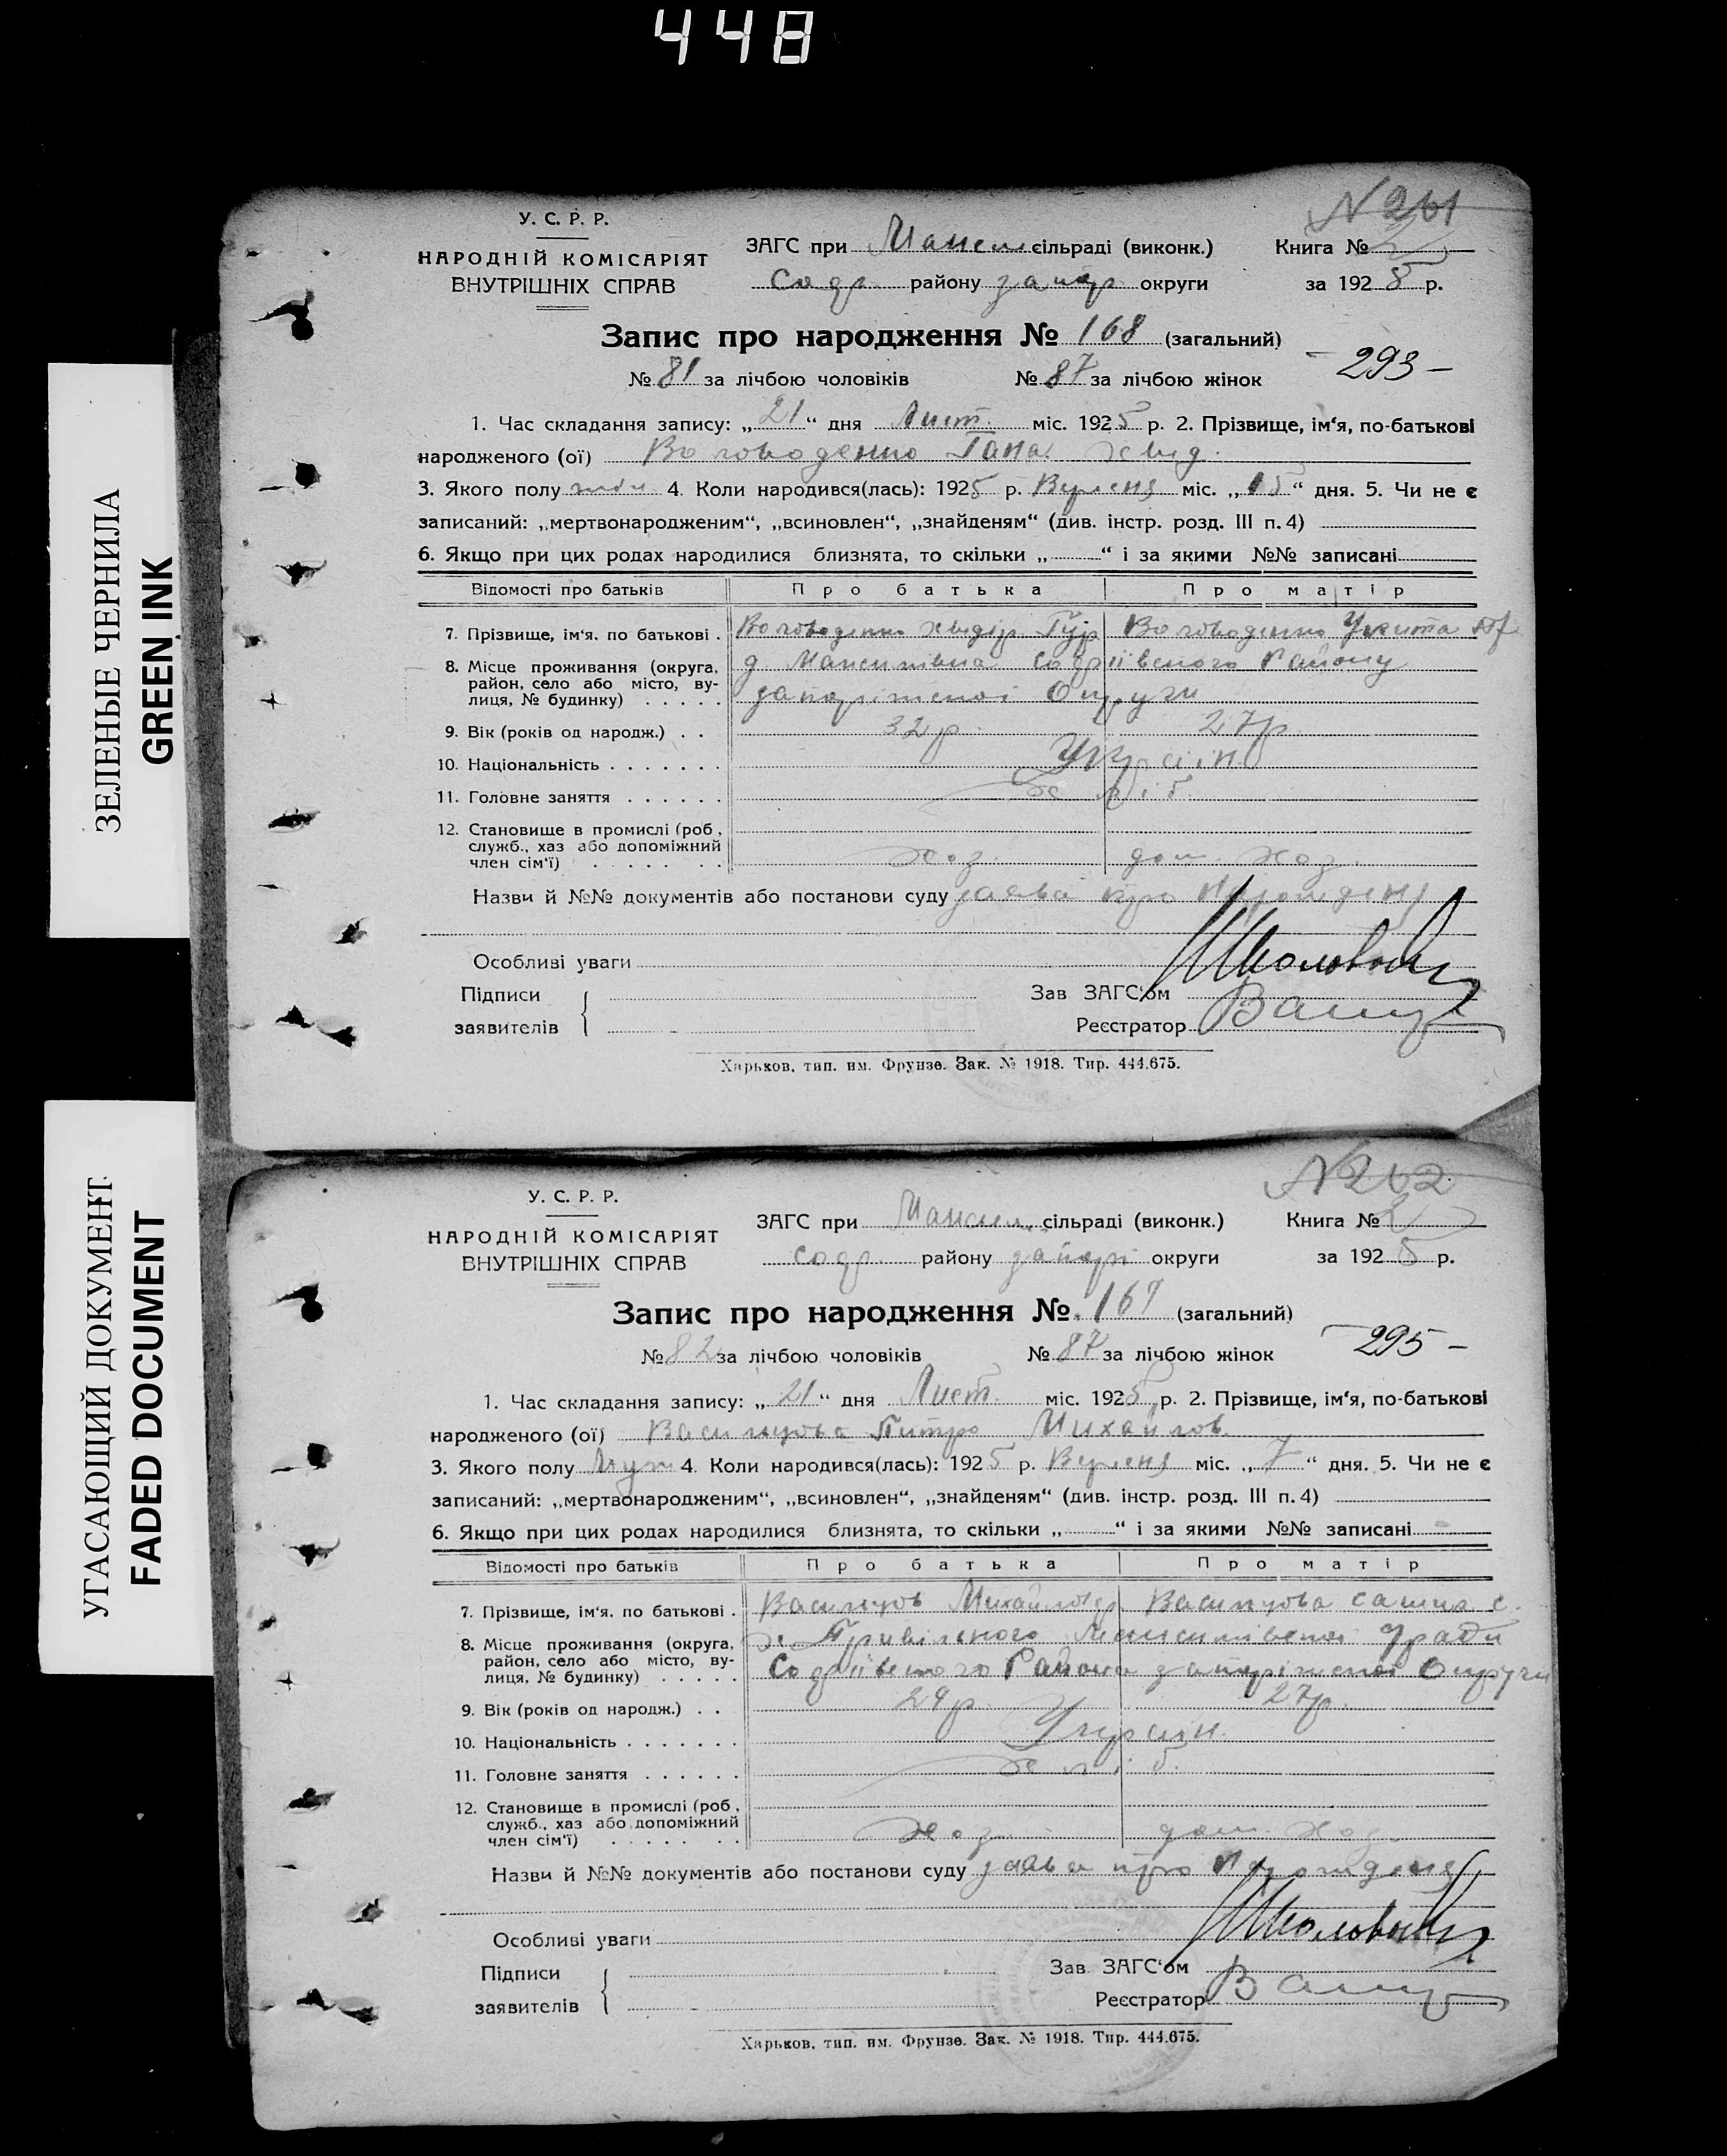 448
ЗЕЛЕНЫЕ ЧЕРНИЛА
GREEN INK
УГАСАЮЩИЙ ДОКУМЕНТ
FADED DOCUMENT
N 261
У. С. Р. Р.
НАРОДНІЙ КОМІСАРІЯТ
ВНУТРІШНІХ СПРАВ
ЗАГС при Максим сільраді (виконк.) Книга № 2
Софр району запор округи за 1925 р.
Запис про народження № 168 (загальний)
№ 81 за лічбою чоловіків № 87 за лічбою жінок 293 –
1. Час складання запису: „21“ дня Лист. міс. 1925 р. 2. Прізвище, ім‘я, по-батькові
народженого (ої) Гана Хвид.
3. Якого полу жін 4. Коли народився(лась): 1925 р. Вересня міс. „15“ дня. 5. Чи не є
записаний: „мертвонародженим“, „всиновлен“, „знайденям“ (див. інстр. розд. III п. 4)
6. Якщо при цих родах народилися близнята, то скільки „ “ і за якими №№ записані
Відомості про батьків Про батька Про матір
7. Прізвище, ім‘я. по батькові .
8. Місце проживання (округа, Максимівка Софіївського Району
район, село або місто, ву-
лиця, № будинку) . . . . . запоріжської Округи
9. Вік (років од народж.) . . 32 р. 27 р.
10. Національність . . . . . . . Україн
11. Головне заняття . . . . . . хліб.
12. Становище в промислі (роб.,
служб., хаз або допоміжний
член сім‘ї) . . . . . . . . хоз. доп. хоз.
Назви й №№ документів або постанови суду заява про народженя
Особливі уваги
Підписи Зав ЗАГС‘ом
заявителів Реєстратор
Харьков, тип. им. Фрунзе. Зак. № 1918. Тир. 444.675.
N 262
У. С. Р. Р.
НАРОДНІЙ КОМІСАРІЯТ
ВНУТРІШНІХ СПРАВ
ЗАГС при Максим. сільраді (виконк.) Книга № 2
Софр. району запорі округи за 1925 р.
Запис про народження № 169 (загальний)
№ 82 за лічбою чоловіків № 87 за лічбою жінок 295 –
1. Час складання запису: „21“ дня Лист. міс. 1925 р. 2. Прізвище, ім‘я, по-батькові
народженого (ої) Васильцова Питро Михайлов.
3. Якого полу Муж 4. Коли народився(лась): 1925 р. Вересня міс. „7“ дня. 5. Чи не є
записаний: „мертвонародженим“, „всиновлен“, „знайденям“ (див. інстр. розд. III п. 4)
6. Якщо при цих родах народилися близнята, то скільки „ “ і за якими №№ записані
Відомості про батьків Про батька Про матір
7. Прізвище, ім‘я. по батькові . Васильцов Михайло Васильцова
8. Місце проживання (округа, х. Привільного Максимівської
район, село або місто, ву- Софіївського Району запоріжської Округи
лиця, № будинку) . . . . .
9. Вік (років од народж.) . . 29 р. 27 р.
10. Національність . . . . . . . Україн.
11. Головне заняття . . . . . . хліб.
12. Становище в промислі (роб.,
служб., хаз або допоміжний
член сім‘ї) . . . . . . . . хоз. доп. хоз.
Назви й №№ документів або постанови суду заява про народженя
Особливі уваги
Підписи Зав. ЗАГС‘ом
заявителів Реєстратор
Харьков, тип. им. Фрунзе. Зак. № 1918. Тир. 444.675.